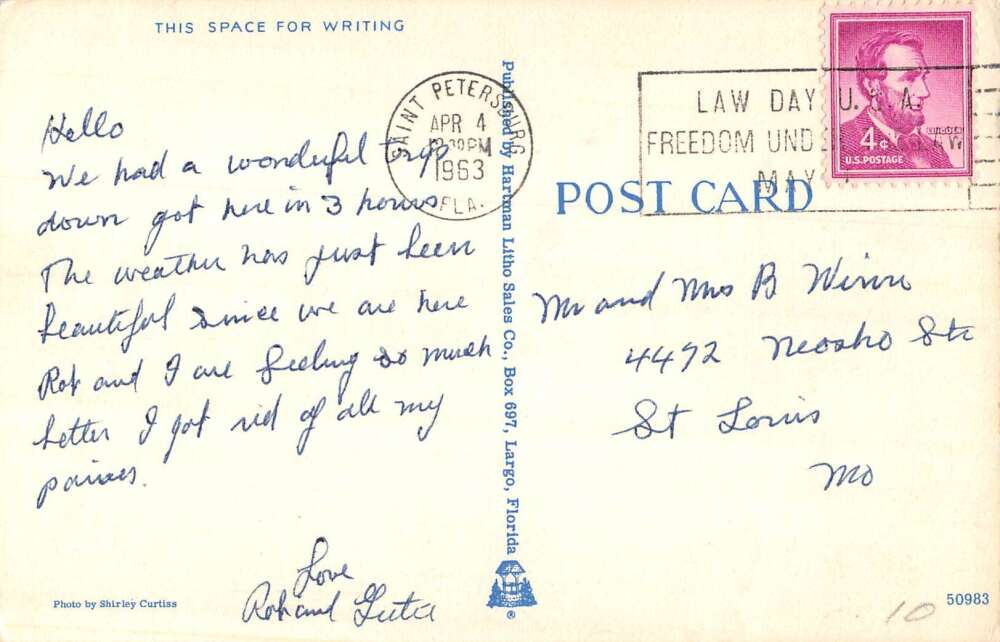 THIS SPACE FOR WRITING
Hello
We had a wonderful trip
down got here in 3 hours
The weather has just been
beautiful since we are here
Rob and I are feeling so much
better I got rid of all my
paines.
Love
Rob and
Photo by Shirley Curtiss
Published by Hartman Litho Sales Co., Box 697, Largo, Florida
®
SAINT PETERSBURG
APR 4
PM
1963
FLA.
LAW DAY U.S.A.
FREEDOM UNDER LAW
MAY
LINCOLN
4¢
U.S. POSTAGE
POST CARD
Mr and Mrs B
4492 Neosho Str
St Louis
Mo
10
50983